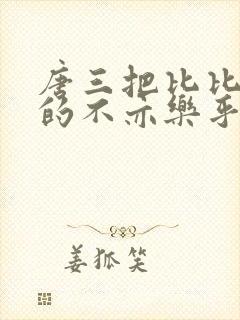 唐三把比比
的不亦樂乎
姜狐笑